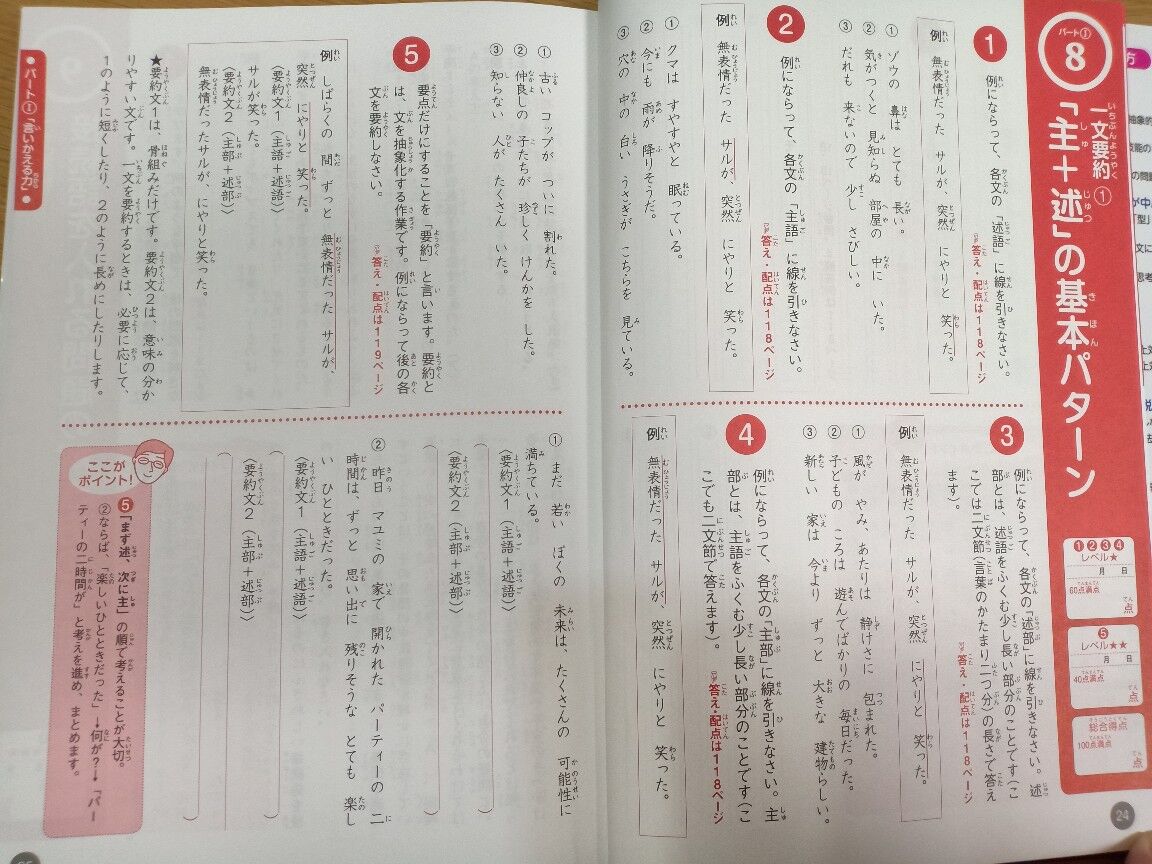 パート① 8
一文要約①
「主＋述」の基本パターン
①②③④
レベル★
月 日
60点満点
点
⑤
レベル★★
月 日
40点満点
点
総合得点
100点満点
点
1 例にならって、各文の「述語」に線を引きなさい。
答え・配点は118ページ
例 無表情だった サルが、突然 にやりと 笑った。
① ゾウの 鼻は とても 長い。
② 気がつくと 見知らぬ 部屋の 中に いた。
③ だれも 来ないので 少し さびしい。
2 例にならって、各文の「主語」に線を引きなさい。
答え・配点は118ページ
例 無表情だった サルが、突然 にやりと 笑った。
① クマは すやすやと 眠っている。
② 今にも 雨が 降りそうだ。
③ 穴の 中の 白い うさぎが こちらを 見ている。
3 例にならって、各文の「述部」に線を引きなさい。述
部とは、述語をふくむ少し長い部分のことです（こ
こでは二文節（言葉のかたまり二つ分）の長さで答え
ます）。
答え・配点は118ページ
例 無表情だった サルが、突然 にやりと 笑った。
① 風が やみ、あたりは 静けさに 包まれた。
② 子どもの ころは 遊んでばかりの 毎日だった。
③ 新しい 家は 今より ずっと 大きな 建物らしい。
4 例にならって、各文の「主部」に線を引きなさい。主
部とは、主語をふくむ少し長い部分のことです（こ
こでも二文節で答えます）。
答え・配点は118ページ
例 無表情だった サルが、突然 にやりと 笑った。
24
① 古い コップが ついに 割れた。
② 仲良しの 子たちが 珍しく けんかを した。
③ 知らない 人が たくさん いた。
5 要点だけにすることを「要約」と言います。要約と
は、文を抽象化する作業です。例にならって後の各
文を要約しなさい。
答え・配点は119ページ
例 しばらくの 間 ずっと 無表情だった サルが、
突然 にやりと 笑った。
〈要約文1（主語＋述語）〉
サルが笑った。
〈要約文2（主部＋述部）〉
無表情だったサルが、にやりと笑った。
★要約文1は、骨組みだけです。要約文2は、意味の分か
りやすい文です。一文を要約するときは、必要に応じて、
1のように短くしたり、2のように長めにしたりします。
① まだ 若い ぼくの 未来は、たくさんの 可能性に
満ちている。
〈要約文1（主語＋述語）〉
〈要約文2（主部＋述部）〉
② 昨日 マユミの 家で 開かれた パーティーの 二
時間は、ずっと 思い出に 残りそうな とても 楽し
い ひとときだった。
〈要約文1（主語＋述語）〉
〈要約文2（主部＋述部）〉
ここが
ポイント！
⑤「まず述、次に主」の順で考えることが大切。
②ならば、「楽しいひとときだった」→何が？→「パー
ティーの二時間が」と考えを進め、まとめます。
●パート①「言いかえる力」●